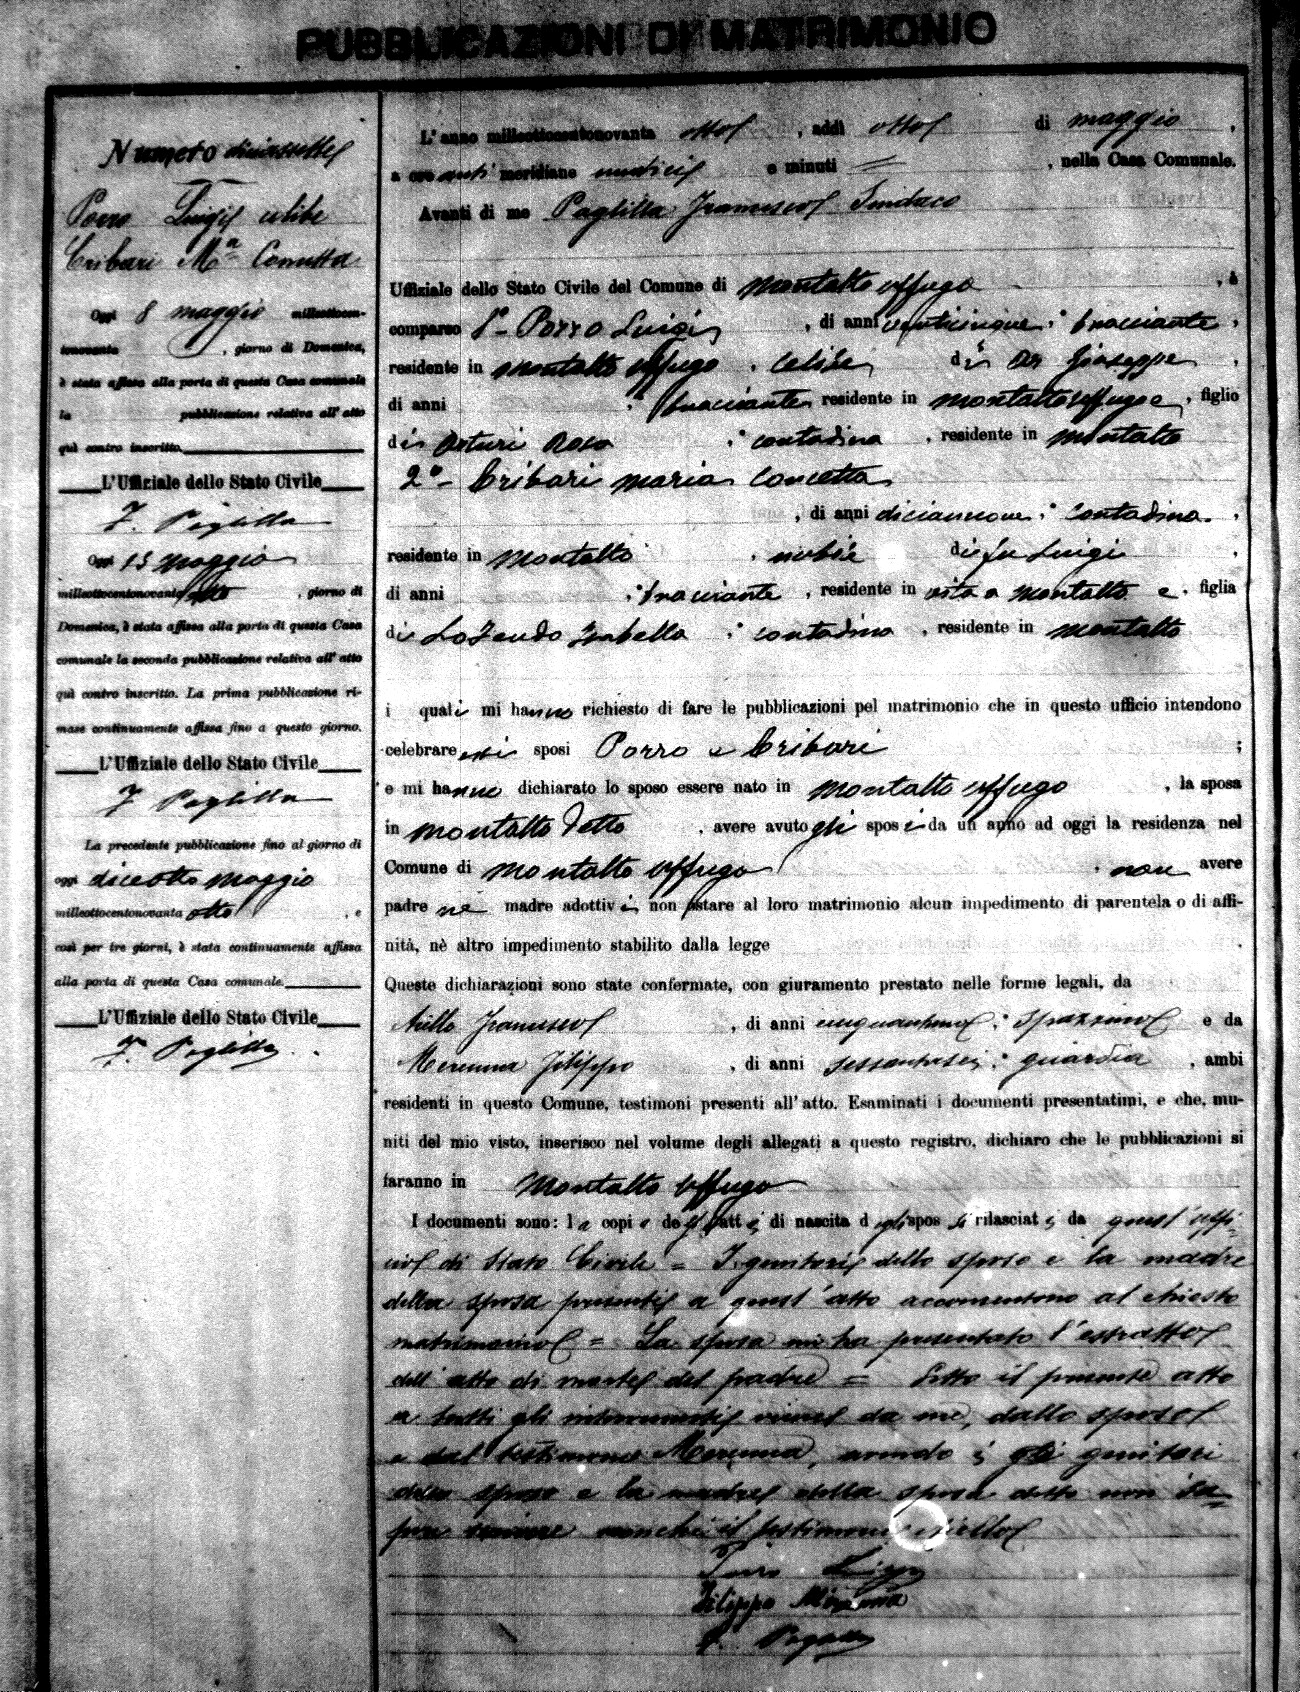 PUBBLICAZIONI DI MATRIMONIO
Numero diciassette
Porro Luigi celibe
Cribari Mª Concetta
Oggi 8 maggio milleottocen-
tonovanta , giorno di Domenica,
è stata affissa alla porta di questa Casa comunale
la pubblicazione relativa all' atto
quì contro inscritto.
L'Uffiziale dello Stato Civile
F. Paglilla
Oggi 15 maggio
milleottocentonovanta otto , giorno di
Domenica, è stata affissa alla porta di questa Casa
comunale la seconda pubblicazione relativa all' atto
quì contro inscritto. La prima pubblicazione ri-
mase continuamente affissa fino a questo giorno.
L'Uffiziale dello Stato Civile
F. Paglilla
La precedente pubblicazione fino al giorno di
oggi diciotto maggio
milleottocentonovanta otto , e
così per tre giorni, è stata continuamente affissa
alla porta di questa Casa comunale.
L'Uffiziale dello Stato Civile
F. Paglilla
L' anno milleottocentonovanta otto , addì otto di maggio ,
a ore anti meridiane undici e minuti = , nella Casa Comunale.
Avanti di me Paglilla Francesco Sindaco
Uffiziale dello Stato Civile del Comune di Montalto Uffugo , è
comparso 1º- Porro Luigi , di anni venticinque, bracciante ,
residente in Montalto Uffugo , celibe di Giuseppe ,
di anni , bracciante residente in Montalto Uffugo e , figlio
di Arturi Rosa , contadina , residente in Montalto
2º- Cribari Maria Concetta
, di anni diciannove, contadina ,
residente in Montalto , nubile di fu Luigi ,
di anni , bracciante , residente in vita a Montalto e , figlia
di Isabella , contadina , residente in Montalto
i quali mi hanno richiesto di fare le pubblicazioni pel matrimonio che in questo ufficio intendono
celebrare essi sposi Porro e Cribari ;
e mi hanno dichiarato lo sposo essere nato in Montalto Uffugo , la sposa
in Montalto detto , avere avuto gli sposi da un anno ad oggi la residenza nel
Comune di Montalto Uffugo , non avere
padre nè madre adottivi, non ostare al loro matrimonio alcun impedimento di parentela o di affi-
nità, nè altro impedimento stabilito dalla legge .
Queste dichiarazioni sono state confermate, con giuramento prestato nelle forme legali, da
Aiello Francesco , di anni cinquantuno, spazzino e da
Merenna Filippo , di anni sessantasei, guardia , ambi
residenti in questo Comune, testimoni presenti all' atto. Esaminati i documenti presentatimi, e che, mu-
niti del mio visto, inserisco nel volume degli allegati a questo registro, dichiaro che le pubblicazioni si
faranno in Montalto Uffugo
I documenti sono: le copie degli atti di nascita degli sposi rilasciati da quest'uffi-
cio di Stato Civile = I genitori dello sposo e la madre
della sposa presenti a quest'atto acconsentono al chiesto
matrimonio = La sposa mi ha presentato l'estratto
dell'atto di morte del padre = Letto il presente atto
a tutti gli intervenuti viene da me, dallo sposo
e dal testimone Merenna, avendo gli genitori
dello sposo e la madre della sposa detto non sa-
pere nonchè il testimone Aiello
Porro Luigi
Filippo Merenna
F. Paglilla